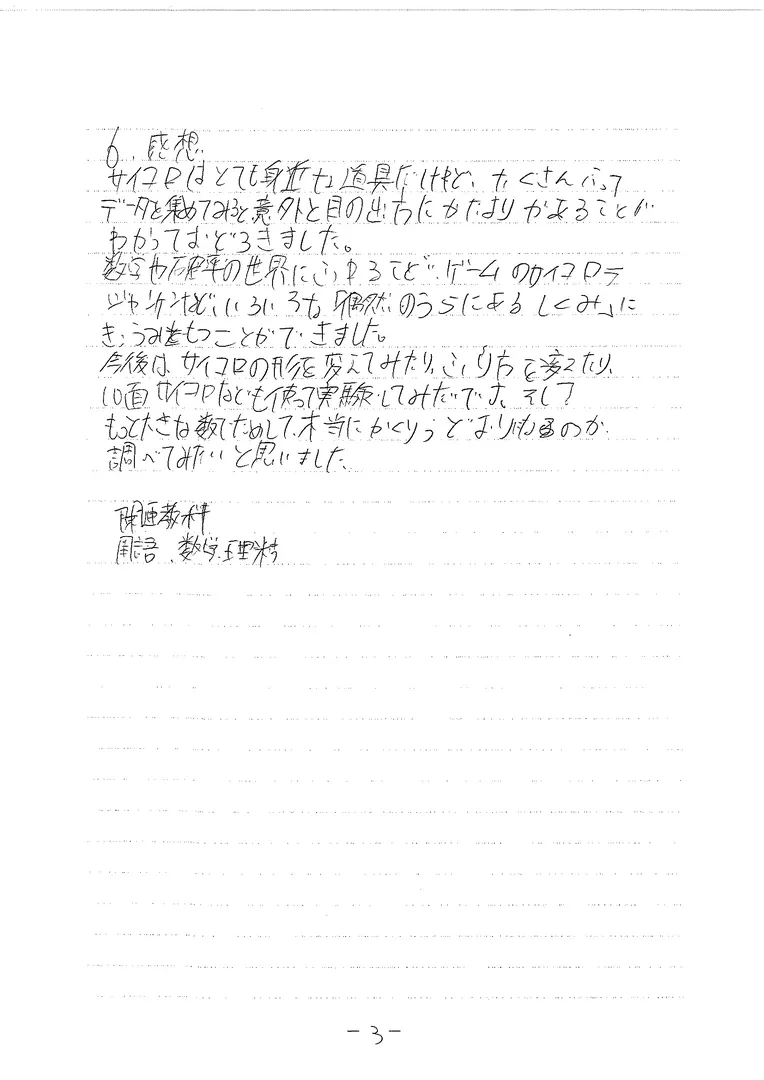 6. 感想
サイコロはとても身近な道具だけど、たくさんふって
データを集めてみると意外と目の出方にかたよりがあることが
わかっておどろきました。
数字や確率の世界にふれることで、ゲームのサイコロや
ジャンケンなど、いろいろな「偶然のうらにあるしくみ」に
きょうみをもつことができました。
今後は、サイコロの形を変えてみたり、ふり方を変えたり、
10面サイコロなども使って実験してみたいです。そして
もっと大きな数でためして、本当にかくりつどおりになるのか
調べてみたいと思いました。
関連教科
国語、数学、理科
-3-